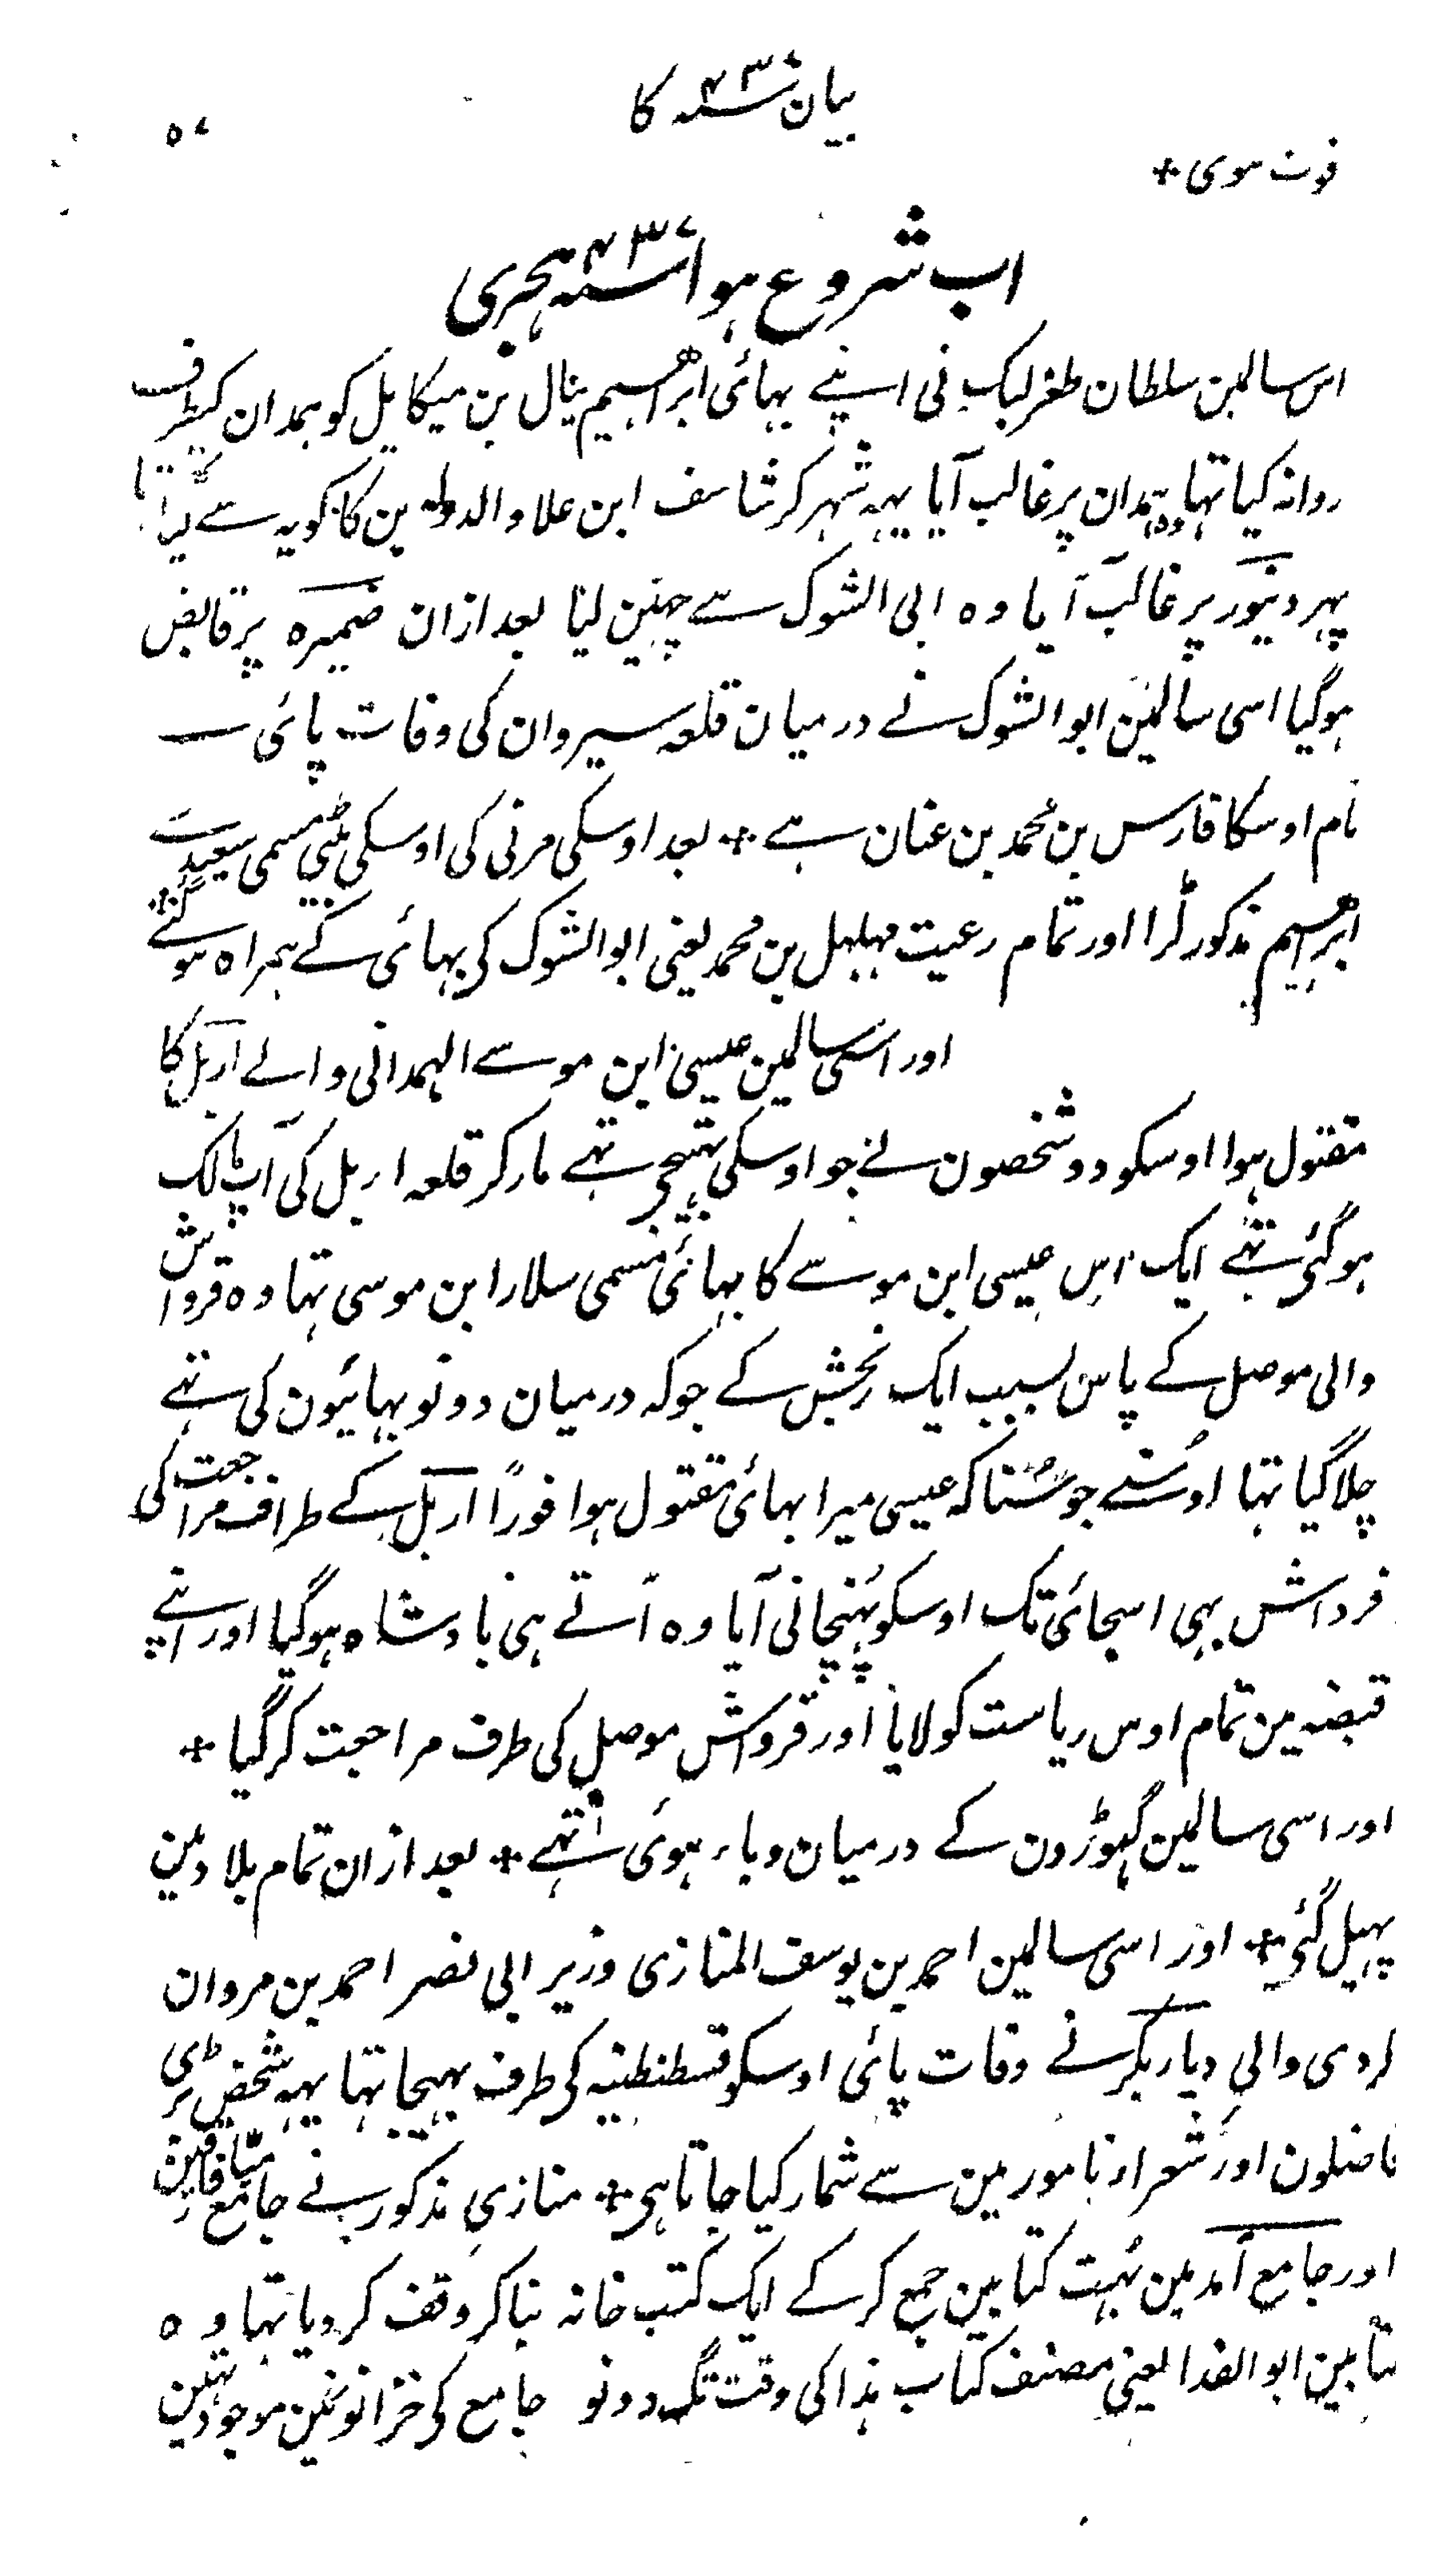 بیان سنہ ۴۳۷ کا
۵۷
فوت ہوی +
اب شروع ہوا سنہ ۴۳۷ ہجری
اس سالمین سلطان طغرلبک نی اپنے بہائی ابراہیم ینال بن میکایل کو ہمدان کیطرف
روانہ کیا تہا وہ ہمدان پر غالب آیا یہہ شہر کرشاسف ابن علاو الدولہ بن کاکویہ سے لیا تہا
پہر دنیور پر غالب آیا وہ ابی الشوک سے چہین لیا بعد ازان ضمیرہ پر قابض
ہوگیا اسی سالمین ابو الشوک نے درمیان قلعہ سیروان کی وفات پائی
نام اوسکا فارس بن محمد بن عنان ہے + بعد اوسکی مرنی کی اوسکی بیٹی مسمی سعید سے
ابراہیم مذکور لڑا اور تمام رعیت مہلہل بن محمد یعنی ابو الشوک کی بہائی کے ہمراہ ہو گئے +
اور اسی سالمین عیسیٰ ابن موسے الہمدانی والے اربل کا
مقتول ہوا اوسکو دو شخصون نے جو اوسکی بہتیجی تہے مار کر قلعہ اربل کی آپ مالک
ہوگئی تہے ایک اس عیسی ابن موسے کا بہائی مسمی سلار ابن موسی تہا وہ قرواش
والی موصل کے پاس بسبب ایک رنجش کے جو کہ درمیان دونو بہائیون کی تہے
چلا گیا تہا اوسنے جو سنا کہ عیسی میرا بہائی مقتول ہوا فوراً اربل کے طراف مراجعت کی
فرداش بہی اسجائی تک اوسکو پہنچانی آیا وہ آتے ہی بادشاہ ہوگیا اور اپنے
قبضہ مین تمام اوس ریاست کو لایا اور قرواش موصل کی طرف مراجعت کر گیا +
اور اسی سالمین گہوڑون کے درمیان وباء ہوئی تہے + بعد ازان تمام بلاد مین
پہیل گئی + اور اسی سالمین احمد بن یوسف المنازی وزیر ابی نصر احمد بن مروان
کردی والی دیاربکر نے وفات پائی اوسکو قسطنطنیہ کی طرف بہیجا تہا یہہ شخص بڑی
فاضلون اور شعراء نامور مین سے شمار کیا جاتا ہی + منازی مذکور نے جامع میافارقین
اور جامع آمد مین بہت کتابین جمع کر کے ایک کتب خانہ بنا کر وقف کر دیا تہا وہ
کتابین ابو الفدا یعنی مصنف کتاب ہذا کی وقت تگ دونو جامع کی خزانو نمین موجود تہین